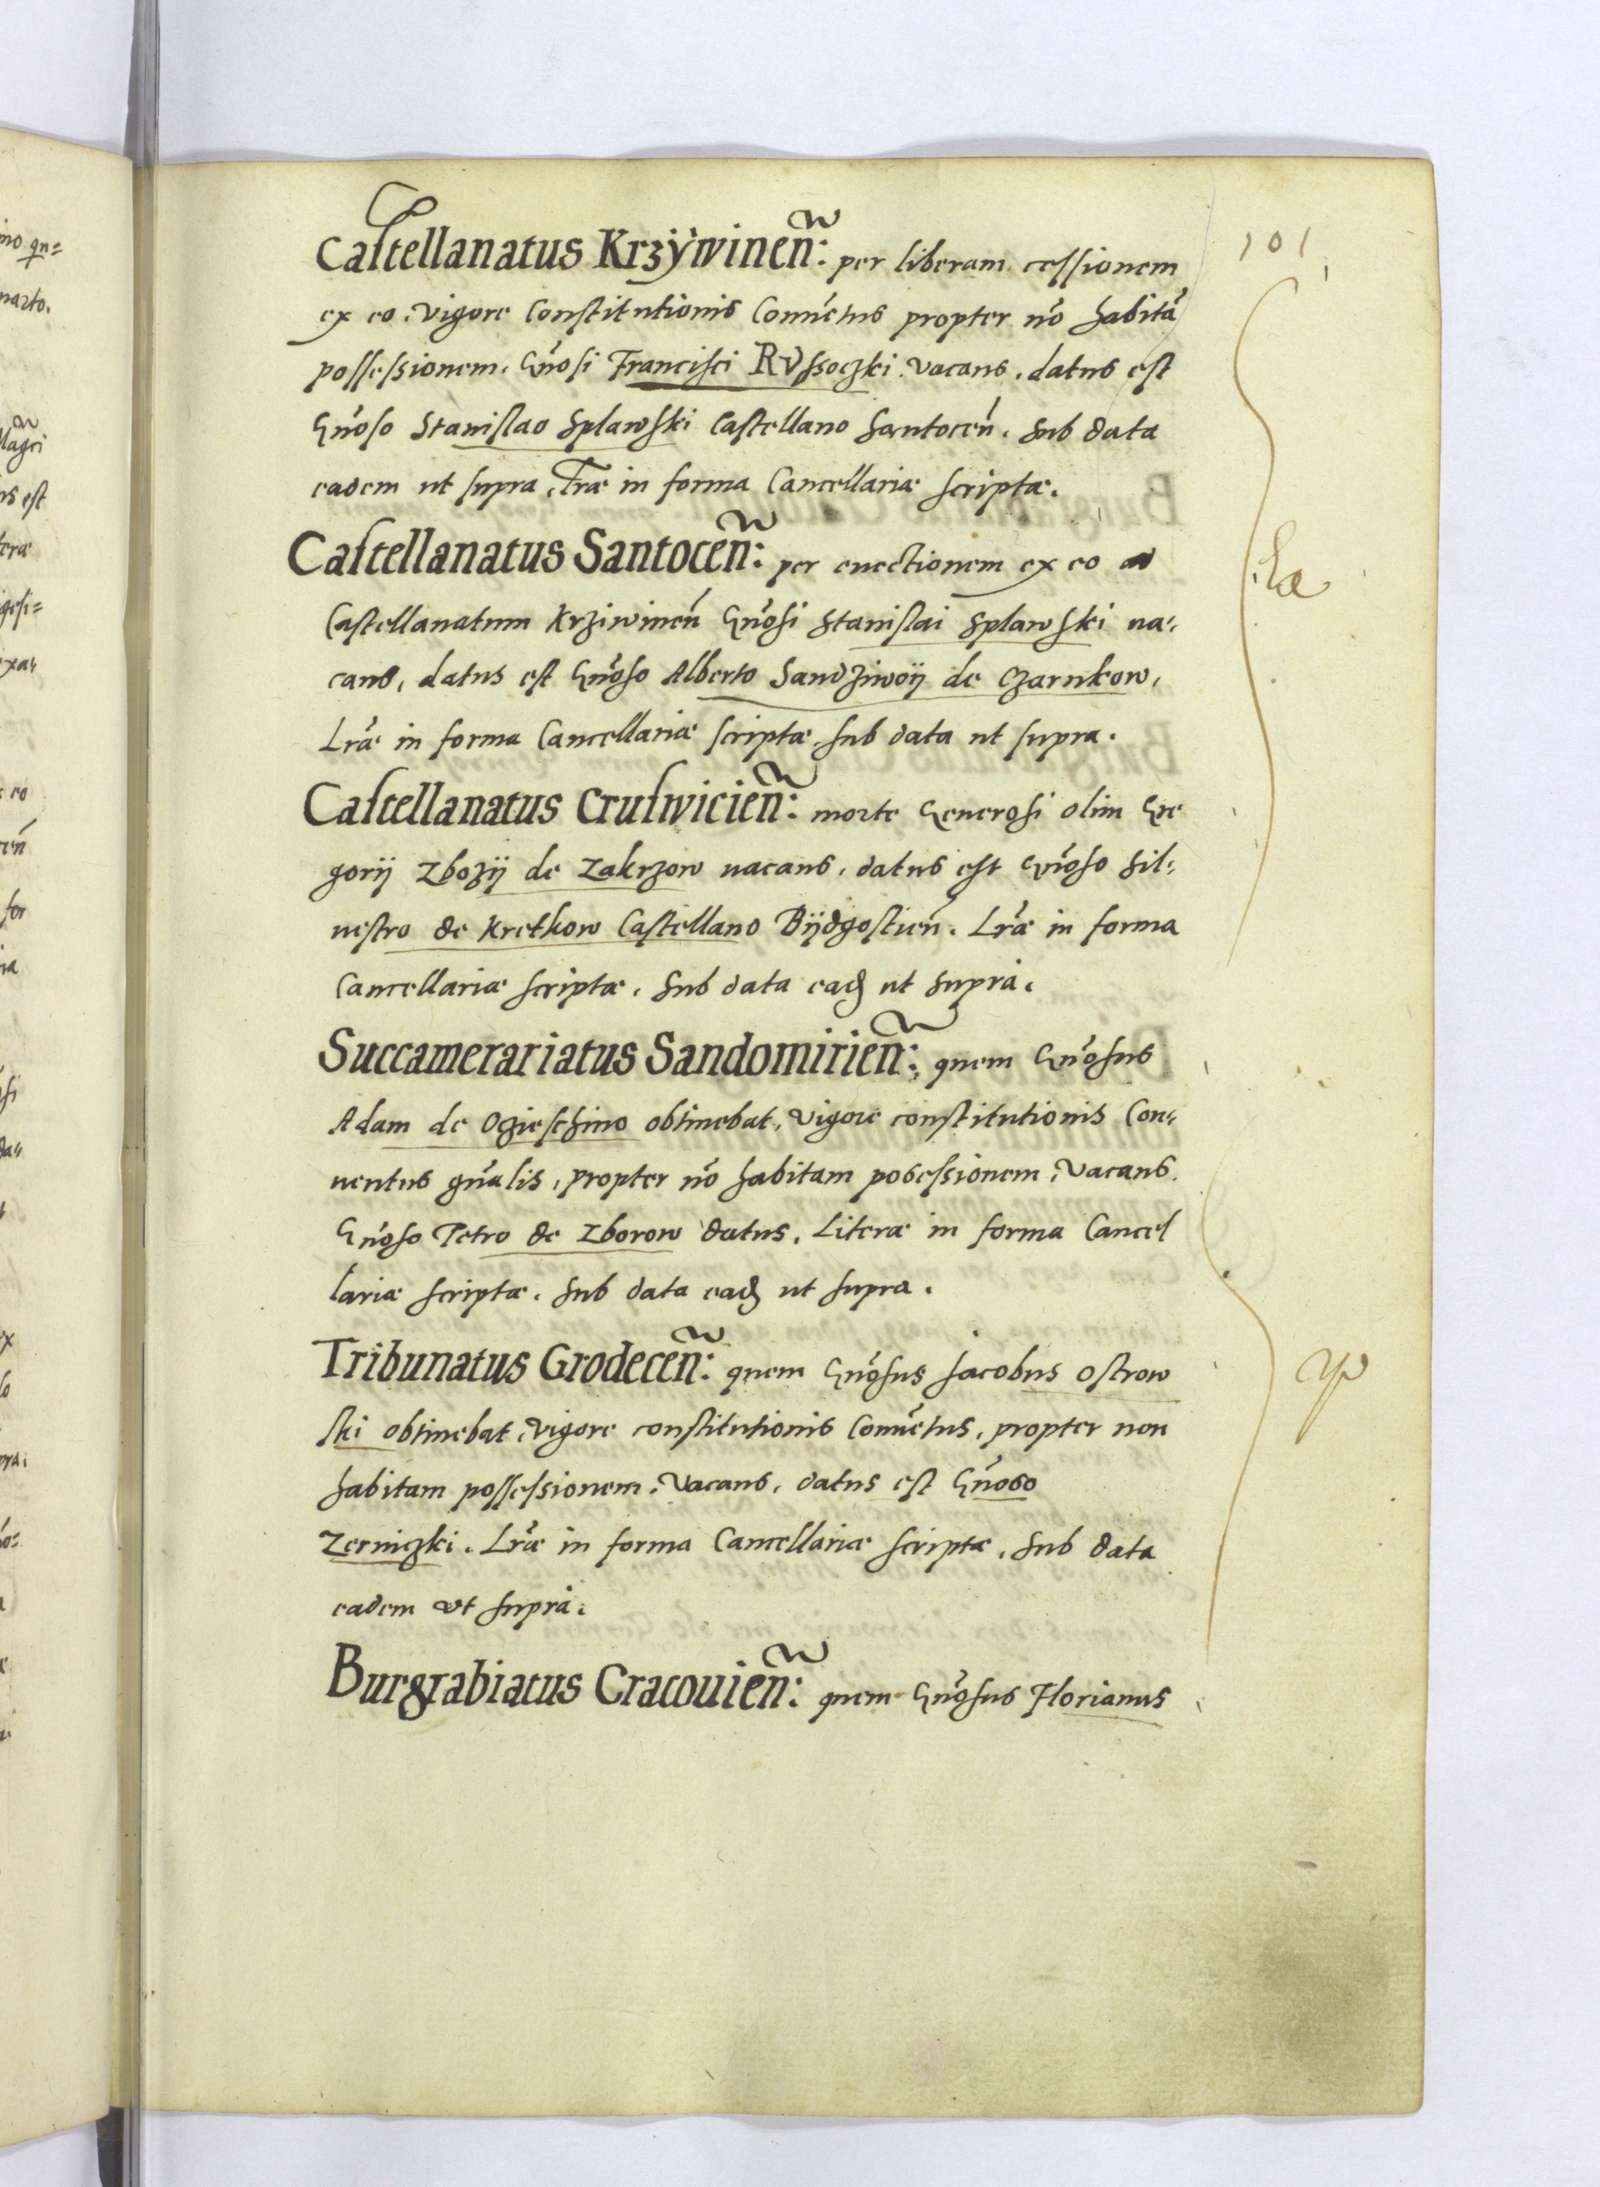 101
Castellanatus Krzÿwineñ: per liberam cessionem
ex eo, vigore Constitutionis Conuẽtus propter nõ habitã
possessionem, Gñosi Francisci Russoczki vacans, datus est
Gñoso Stanislao Splawski Castellano Santoceñ, sub data
eadem ut supra, Lrãe in forma Cancellariæ scriptæ.
Castellanatus Santoceñ: per euectionem ex eo ad
Castellanatum Krziwineñ Gñosi Stanislai Splawski ua-
cans, datus est Gñoso Alberto Sandziwoÿ de Czarnkow,
Lrãe in forma Cancellariæ scriptæ, sub data ut supra.
Castellanatus Cruswicieñ: morte Generosi olim Gre
gorij Zbozij de Zakrzow uacans, datus est Gñoso Sil-
uestro de Kretkow Castellano Bÿdgostieñ. Lrãe in forma
Cancellariæ scriptæ, sub data eadȝ ut suprà.
Succamerariatus Sandomirieñ: quem Gñosus
Adam de Ozieschino obtinebat, vigore constitutionis Con-
uentus gñalis, propter nõ habitam possessionem, vacans
Gñoso Petro de Zborow datus, Literæ in forma Cancel
lariæ scriptæ, sub data eadȝ ut supra.
Tribunatus Grodeceñ: quem Gñosus Jacobus Ostrow
ski obtinebat, vigore constitutionis Conuẽtus, propter non
habitam possessionem, vacans, datus est Gñoso
Zerniczki. Lrãe in forma Cancellariæ scriptæ, sub data
eadem ut suprà.
Burgrabiatus Cracouieñ: quem Gñosus Florianus